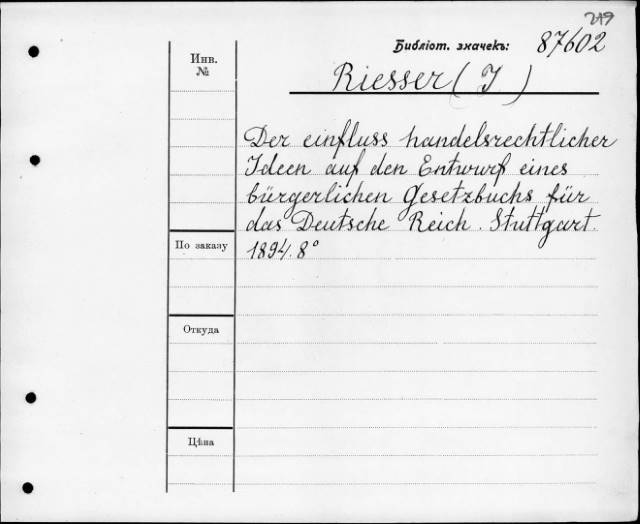 219
Библіот. значекъ: 87602
Инв.
№
Riesser (J)
Der einfluss handelsrechtlicher
Ideen auf den Entwurf eines
bürgerlichen Gesetzbuchs für
das Deutsche Reich. Stuttgart.
1894. 8°
По заказу
Откуда
Цѣна